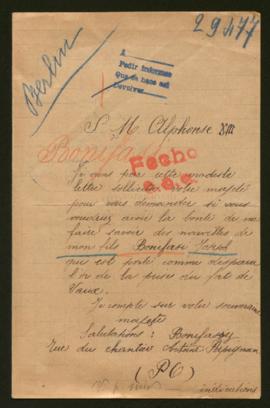 29477
Berlin
A
Pedir informes
que se hace así
S. M. Alphonse XIII
Bonifa
Fecho
Je vous par cette modeste
lettre solliciter votre majesté
pour vous demander si vous
voudriez avoir la bonté de me
faire savoir des nouvelles de
mon fils Bonifasi Joseph
qui est porté comme disparu
lor de la prise du fort de
Vaux.
Je compte sur votre souveraine
majesté
Salutations : Bonifassy
rue du chantier Antoine Perpignan
(P O)
indications